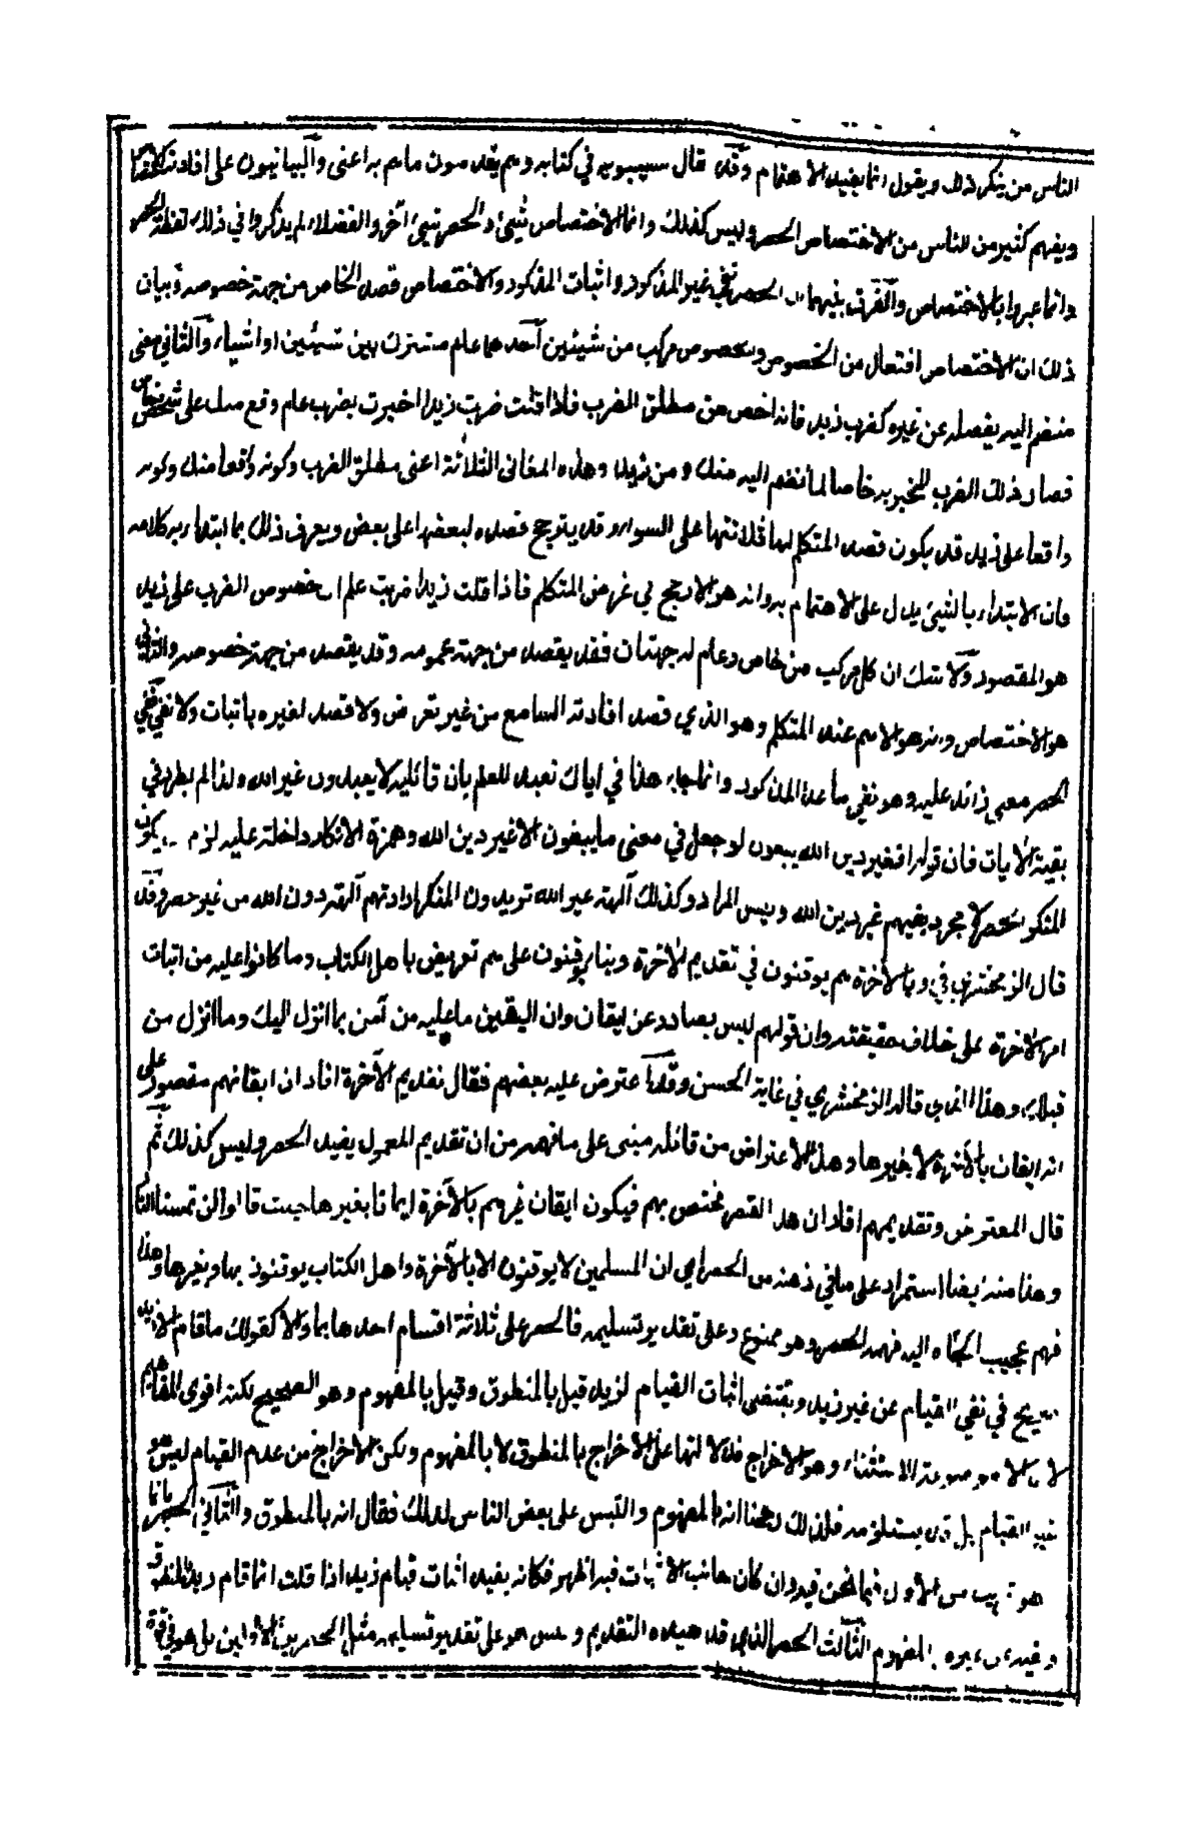 الناس من ينكر ذلك ويقول انما يفيد الاهتمام وقد قال سيبويه في كتابه وهم يقدمون ماهم به اعنى والبيانيون على افادته
ويفهم كثير من الناس من الاختصاص الحصر وليس كذلك وانما الاختصاص شيئ والحصر شيئ آخر والفضلاء لم يذكروا في ذلك لفظة الحصر
وانما عبروا بالاختصاص والفرق بينهما ان الحصر نفي غير المذكور واثبات المذكور والاختصاص قصد الخاص من جهة خصوصه وبيان
ذلك ان الاختصاص افتعال من الخصوص والخصوص مركب من شيئين احدهما عام مشترك بين شيئين او اشياء والثاني معنى
منضم اليه يفصله عن غيره كضرب زيد فانه اخص من مطلق الضرب فاذا قلت ضربت زيدا اخبرت بضرب عام وقع منك على شخص خاص
فصار ذلك الضرب المخبر به خاصا لما انضم اليه منك ومن زيد وهذه المعاني الثلاثة اعنى مطلق الضرب وكونه واقعا منك وكونه
واقعا على زيد قد يكون قصد المتكلم لها ثلاثتها على السواء وقد يترجح قصده لبعضها على بعض ويعرف ذلك بما ابتدأ به كلامه
فان الابتداء بالشيئ يدل على الاهتمام به وانه هو الارجح في غرض المتكلم فاذا قلت زيدا ضربت علم ان خصوص الضرب على زيد
هو المقصود ولا شك ان كل مركب من خاص وعام له جهتان فقد يقصد من جهة عمومه وقد يقصد من جهة خصوصه والثاني
هو الاختصاص وانه هو الاهم عند المتكلم وهو الذي قصد افادته السامع من غير تعرض ولا قصد لغيره باثبات ولا نفي ففي
الحصر معنى زائد عليه وهو نفي ما عدا المذكور وانما جاء هذا في اياك نعبد للعلم بان قائليه لا يعبدون غير الله ولذا لم يطرد في
بقية الآيات فان قوله افغير دين الله يبغون لو جعل في معنى ما يبغون الا غير دين الله وهمزة الانكار داخلة عليه لزم ان يكون
المنكر الحصر لا مجرد بغيهم غير دين الله وليس المراد وكذلك آلهة غير الله تريدون المنكر ارادتهم آلهة دون الله من غير حصر وقد
قال الزمخشري في وبالآخرة هم يوقنون في تقديم الآخرة وبناء يوقنون على هم تعريض باهل الكتاب وما كانوا عليه من اثبات
امر الآخرة على خلاف حقيقته وان قولهم ليس بصادر عن ايقان وان اليقين ما عليه من آمن بما انزل اليك وما انزل من
قبلك وهذا الذي قاله الزمخشري في غاية الحسن وقد اعترض عليه بعضهم فقال تقديم الآخرة افاد ان ايقانهم مقصور على
انه ايقان بالآخرة لا بغيرها وهذا الاعتراض من قائله مبنى على ما فهمه من ان تقديم المعمول يفيد الحصر وليس كذلك ثم
قال المعترض وتقديم هم افاد ان هذا القصر مختص بهم فيكون ايقان غيرهم بالآخرة ايمانا بغيرها حيث قالوا لن تمسنا النار
وهذا منه ايضا استمرار على ما في ذهنه من الحصر اي ان المسلمين لا يوقنون الا بالآخرة واهل الكتاب يوقنون بها وبغيرها وهذا
فهم عجيب الجأه اليه فهمه الحصر وهو ممنوع وعلى تقدير تسليمه فالحصر على ثلاثة اقسام احدها بما والا كقولك ما قام الا زيد
صريح في نفي القيام عن غير زيد ويقتضى اثبات القيام لزيد قيل بالمنطوق وقيل بالمفهوم وهو الصحيح لكنه اقوى المفاهيم
لان الا موضوعة للاستثناء وهو الاخراج فدلالتها على الاخراج بالمنطوق لا بالمفهوم ولكن الاخراج من عدم القيام ليس هو
عين القيام بل قد يستلزمه فلذلك رجحنا انه بالمفهوم والتبس على بعض الناس لذلك فقال انه بالمنطوق والثاني الحصر بانما
هو قريب من الاول فيما نحن فيه وان كان جانب الاثبات فيه اظهر فكانه يفيد اثبات قيام زيد اذا قلت انما قام زيد بالمنطوق
ونفيه عن غيره بالمفهوم الثالث الحصر الذي قد يفيده التقديم وليس هو على تقدير تسليمه مثل الحصرين الاولين بل هو في قوة